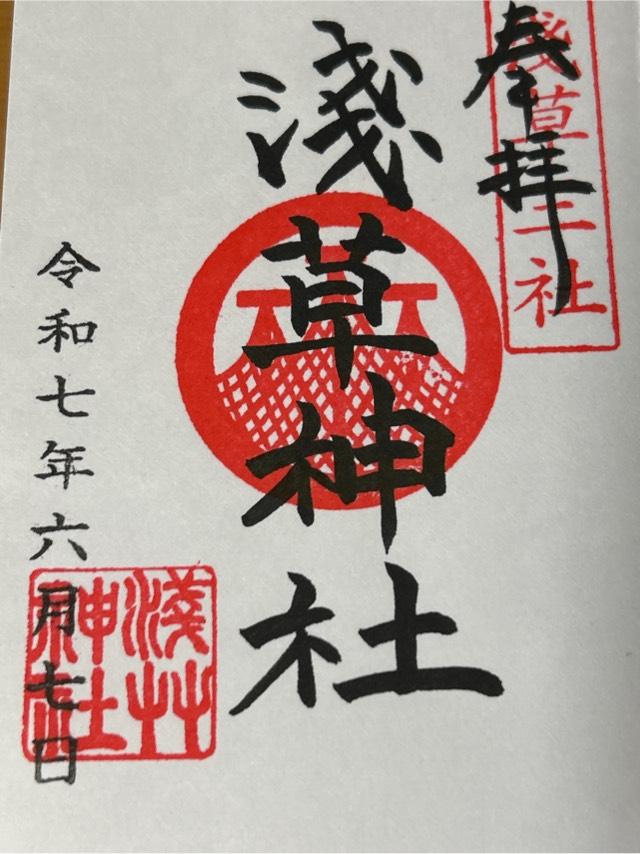 奉拝
淺草三社
淺草神社
令和七年六月七日
淺艸
神社